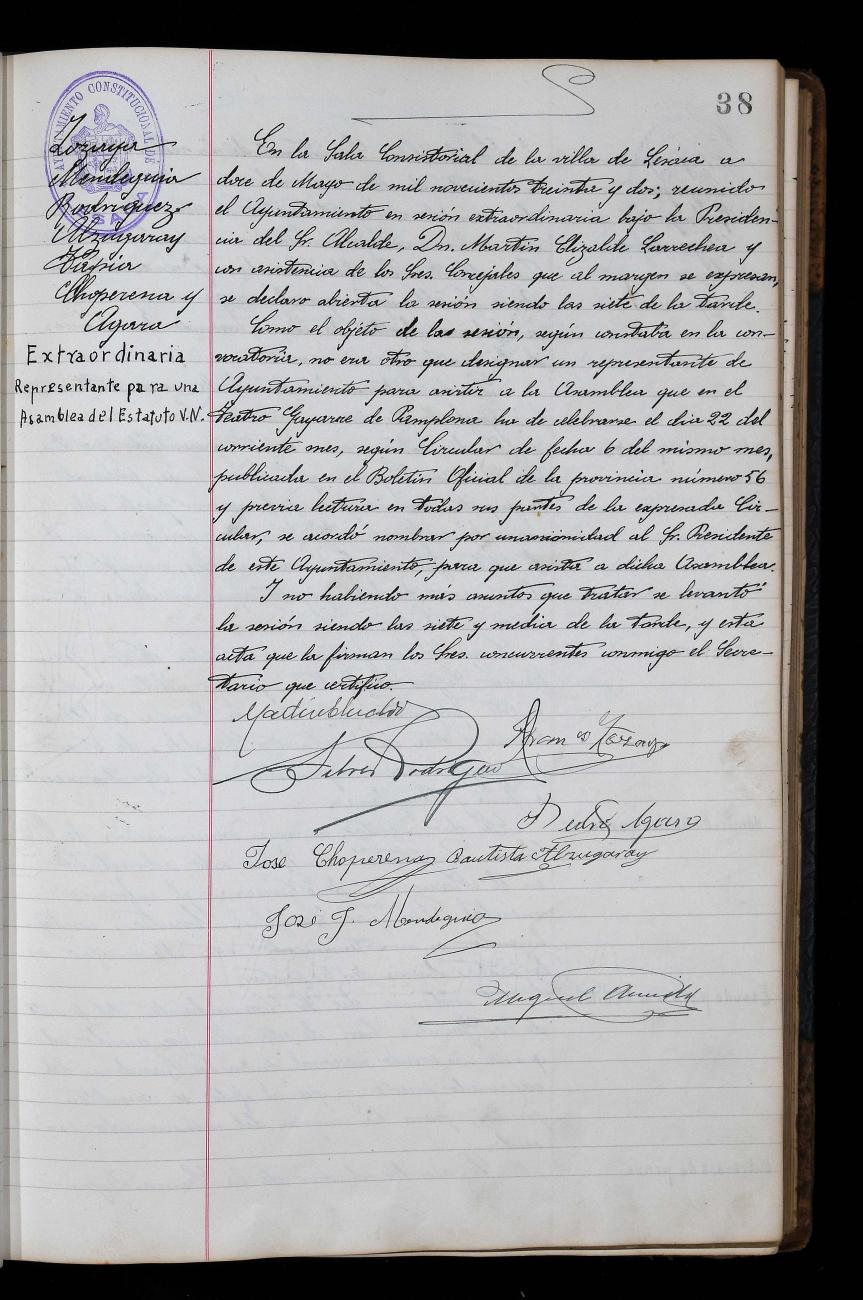 38
AYUNTAMIENTO CONSTITUCIONAL DE
Lozaya
Mendeguia
Rodríguez
Alzugaray
Choperena y
Agara
Extraordinaria
Representante para una
Asamblea del Estatuto V.N.
En la Sala Consistorial de la villa de Lesaca a
doce de Mayo de mil novecientos treinta y dos; reunido
el Ayuntamiento en sesión extraordinaria bajo la Presiden-
cia del Sr. Alcalde, Dn. Martin Elizalde Larrechea y
con asistencia de los Sres. Concejales que al margen se expresan,
se declaro abierta la sesión siendo las siete de la tarde.
Como el objeto de las sesión, según constaba en la con-
vocatoria, no era otro que designar un representante de
Ayuntamiento para asistir a la Asamblea que en el
teatro Gayarre de Pamplona ha de celebrarse el dia 22 del
corriente mes, según Circular de fecha 6 del mismo mes,
publicada en el Boletin Oficial de la provincia número 56
y previa lectura en todas sus partes de la expresada Cir-
cular, se acordó nombrar por unanimidad al Sr. Presidente
de este Ayuntamiento, para que asista a dicha Asamblea.
Y no habiendo más asuntos que tratar se levantó
la sesión siendo las siete y media de la tarde, y esta
acta que la firman los Sres. concurrentes conmigo el Secre-
tario que certifico.
Martin Elizalde
Pedro Agara
Jose Choperena Bautista Alzugaray
José J. Mendeguia
Miguel